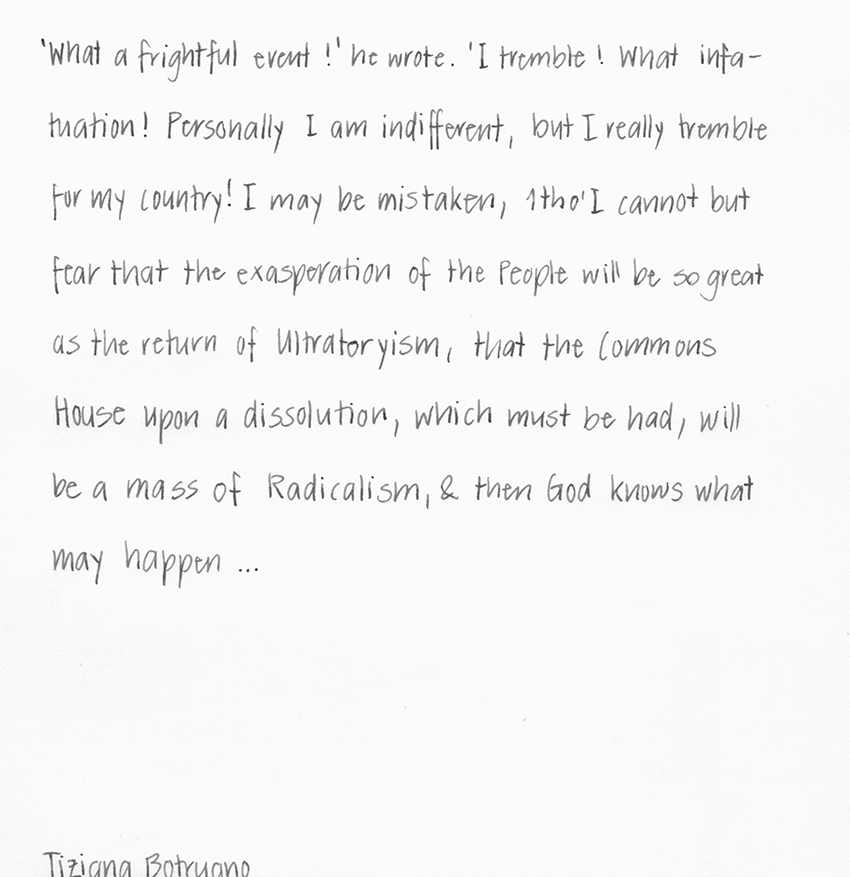 'What a frightful event!' he wrote. 'I tremble! What infa-
tuation! Personally I am indifferent, but I really tremble
for my country! I may be mistaken, 1tho' I cannot but
fear that the exasperation of the People will be so great
as the return of Ultratoryism, that the Commons
House upon a dissolution, which must be had, will
be a mass of Radicalism, & then God knows what
may happen ...
Tiziana Botruano